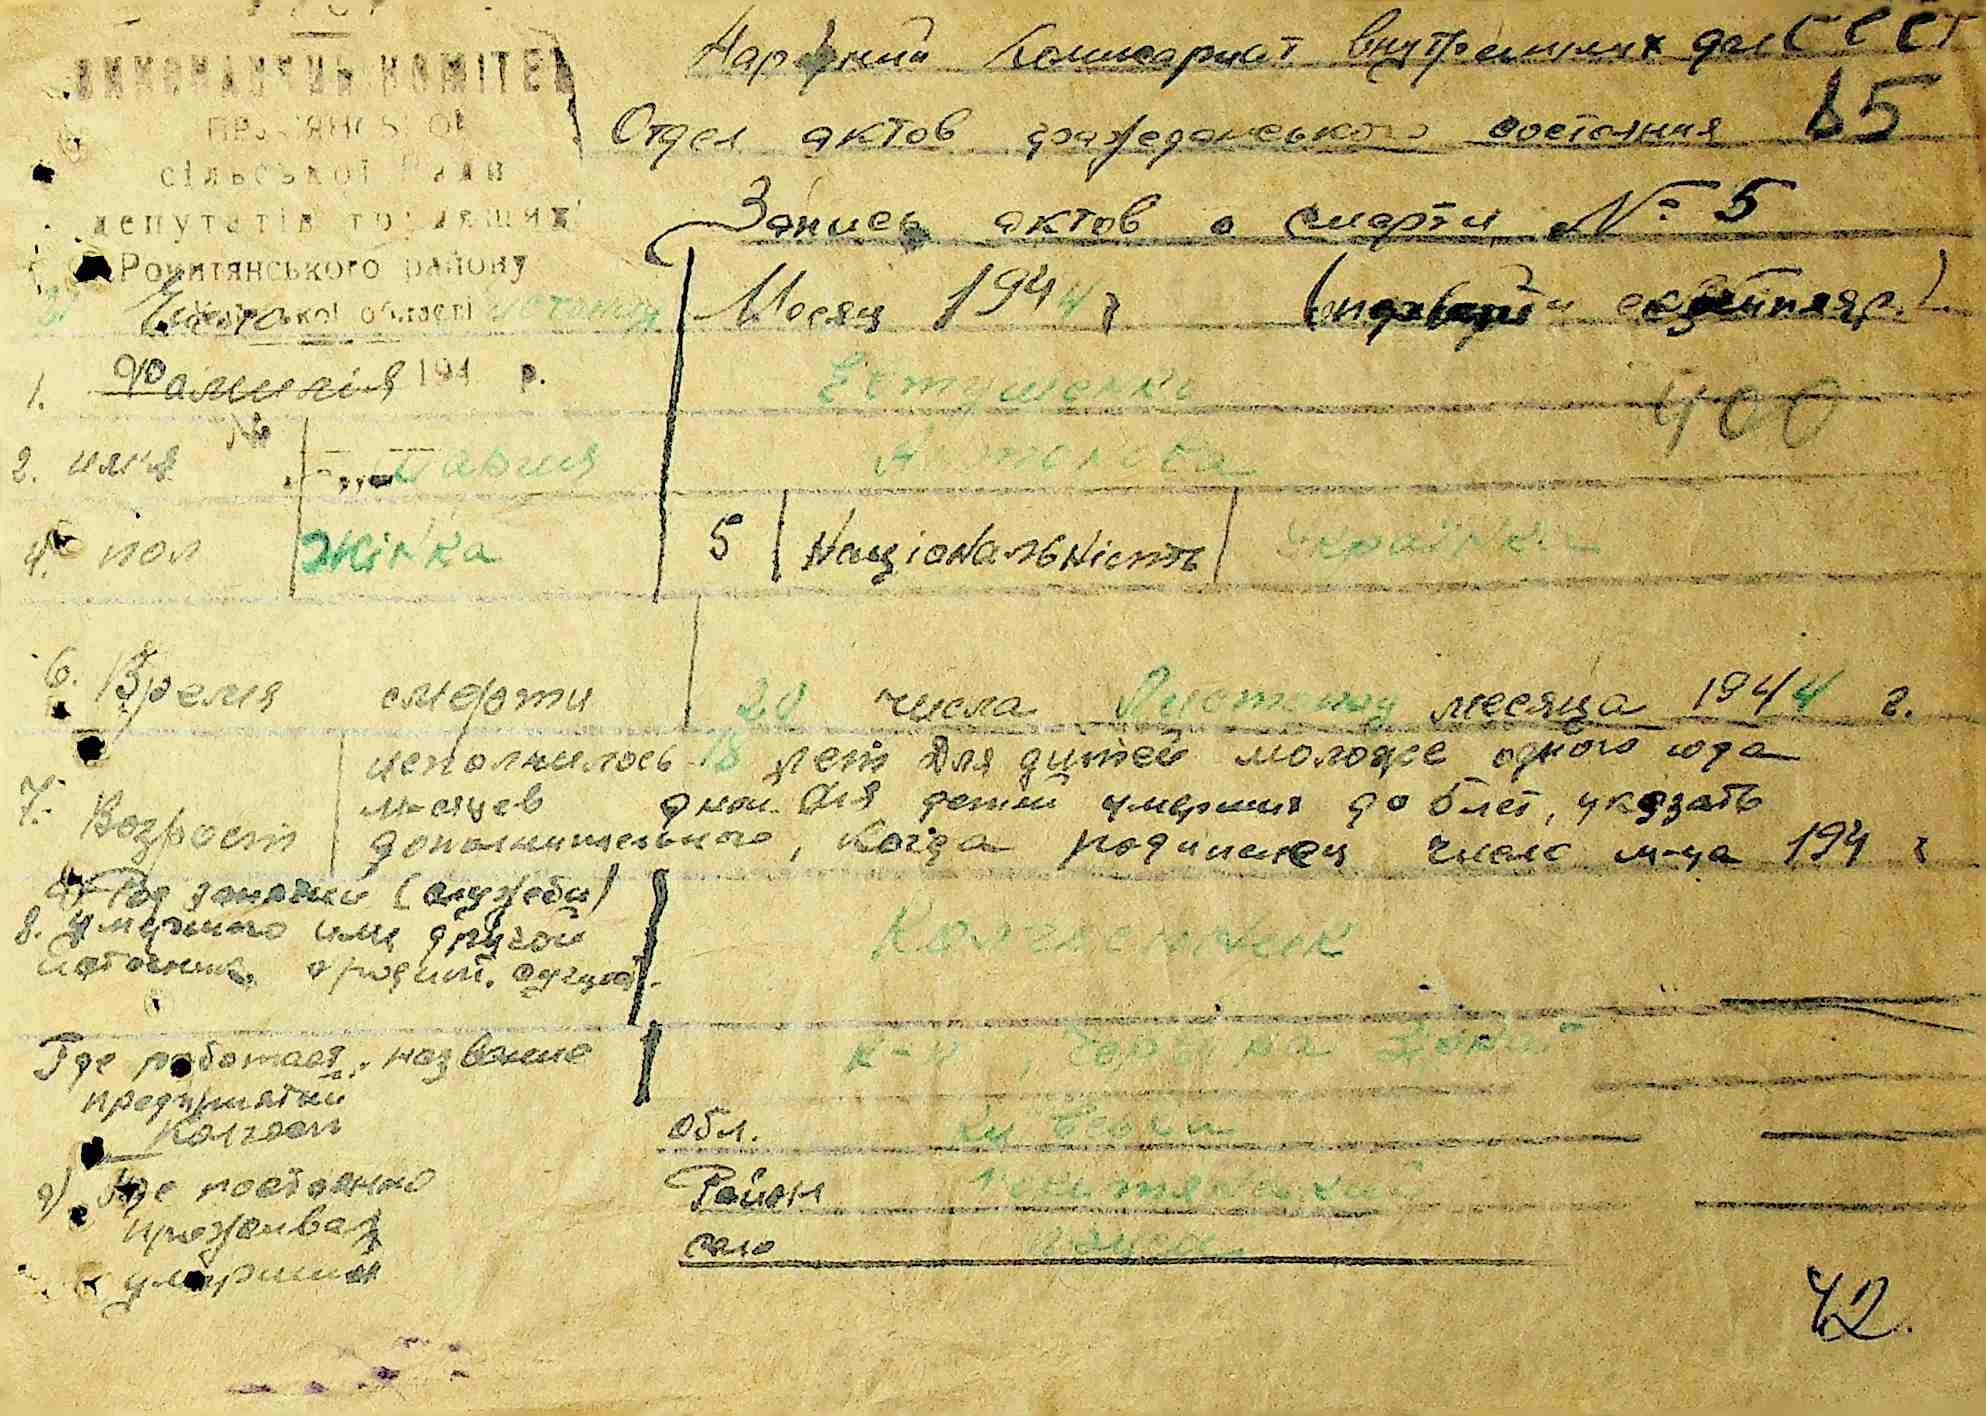 ВИКОНАВЧИЙ КОМІТЕТ
сільської Ради
депутатів трудящих
Рокитянського району
області
194 р.
№
Народний Комисариат внутренних дел СССР
Отдел актов гражданського состояния 65
Запись актов о смерти № 5
Число Листопад Месяц 1944 г (первый екземпляр.)
1. Фамилія Євтушенко 400
2. имя
4. пол Жінка 5 Національність Українка
6. Время смерти 20 числа Листопад месяца 1944 г.
7. Возраст исполнилось 18 лет Для дитей молодже одного года
месяцев дней Для детей умерших до 5 лет, указать
дополнительно, когда родился число м-ца 194 г
8. Род занятий (службы)
умершего или другой
источник
Колгоспник
Где работает, название
предприятий
Колгосп
к-п
Обл. Київська
9) Где постоянно
проживал
умерший
Район Рокитянський
село
42.